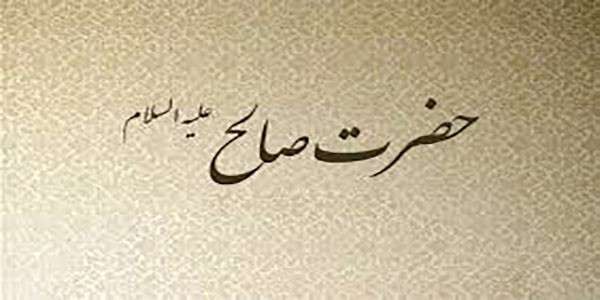 حضرت صالح علیه السلام